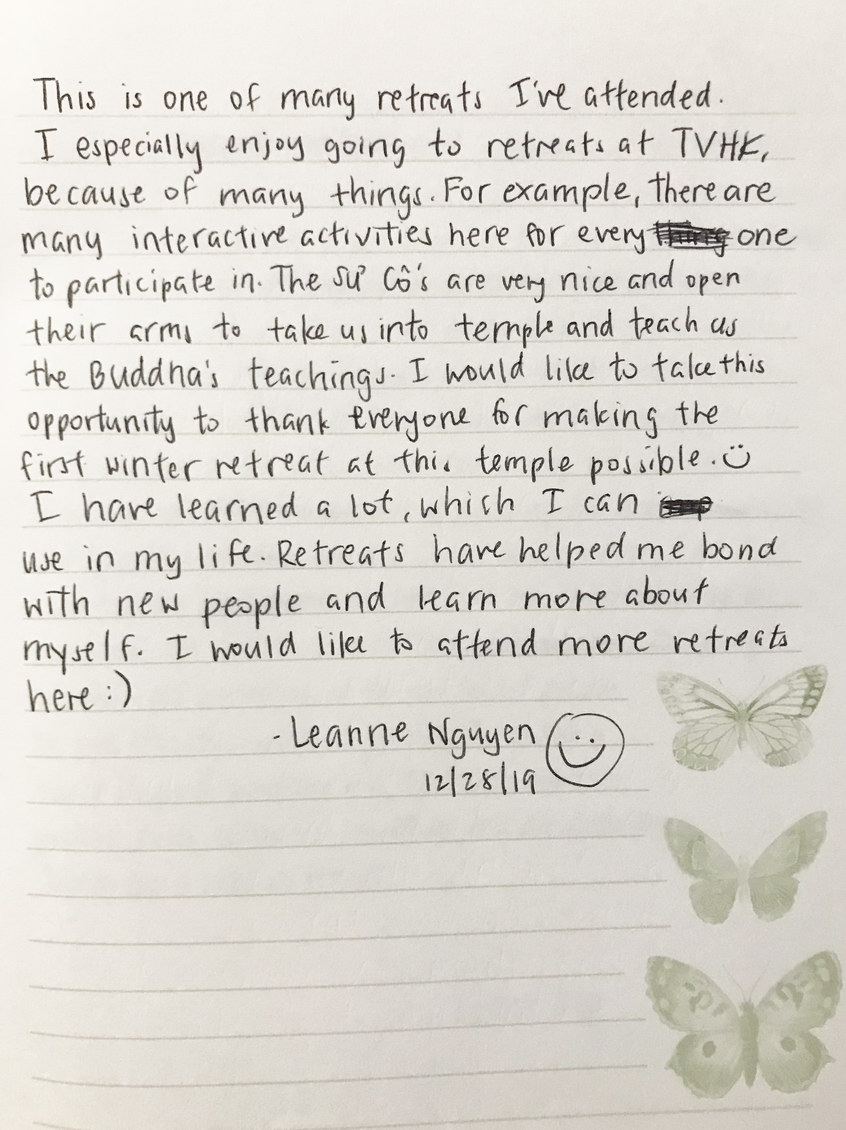 This is one of many retreats I've attended.
I especially enjoy going to retreats at TVHK,
because of many things. For example, there are
many interactive activities here for every one
to participate in. The Sư Cô's are very nice and open
their arms to take us into temple and teach us
the Buddha's teachings. I would like to take this
opportunity to thank everyone for making the
first winter retreat at this temple possible. :)
I have learned a lot, which I can
use in my life. Retreats have helped me bond
with new people and learn more about
myself. I would like to attend more retreats
here :)
- Leanne Nguyen
12/28/19